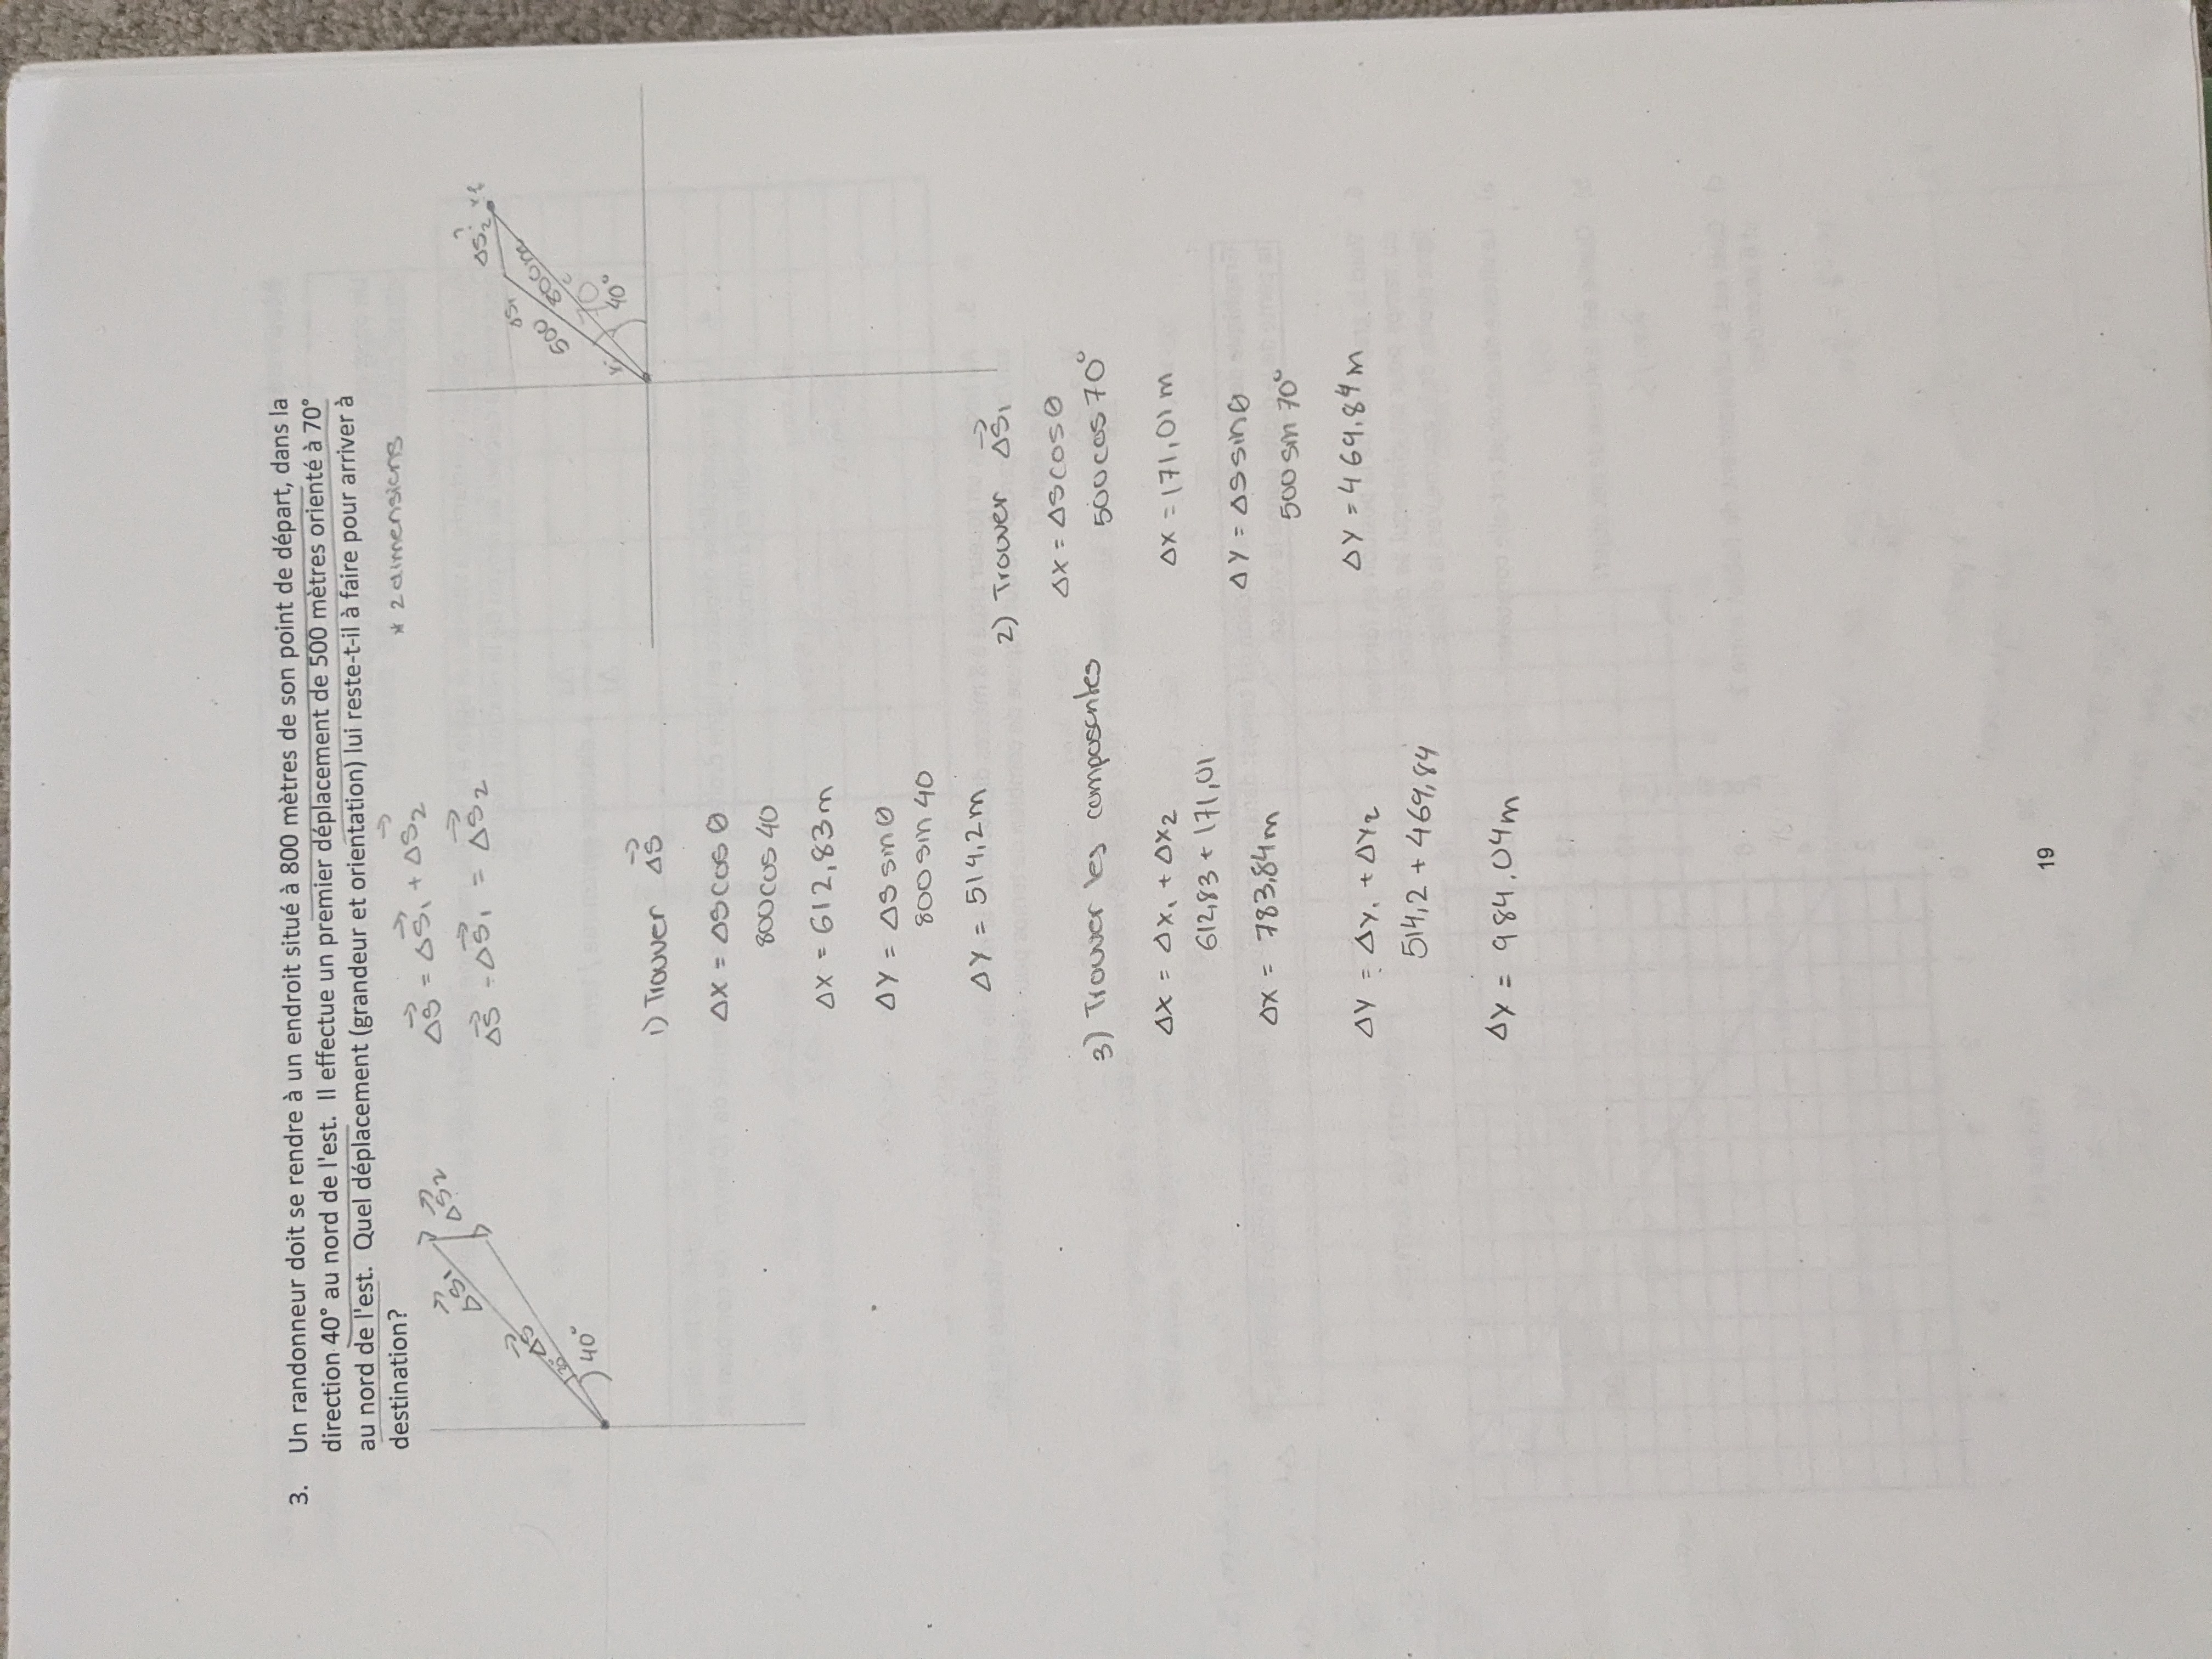 3. Un randonneur doit se rendre à un endroit situé à 800 mètres de son point de départ, dans la
direction 40° au nord de l'est. Il effectue un premier déplacement de 500 mètres orienté à 70°
au nord de l'est. Quel déplacement (grandeur et orientation) lui reste-t-il à faire pour arriver à
destination?
* 2 dimensions
Δs⃗ = Δs⃗₁ + Δs⃗₂
Δs⃗ - Δs⃗₁ = Δs⃗₂
Δs⃗₁
Δs⃗₂
Δs⃗
40°
Δs⃗₂
Δs₁
500
800m
70
40°
1) Trouver Δs⃗
Δx = Δs cos θ
800 cos 40
Δx = 612,83 m
Δy = Δs sin θ
800 sin 40
Δy = 514,2 m
2) Trouver Δs⃗₁
Δx = Δs cos θ
500 cos 70°
Δx = 171,01 m
Δy = Δs sin θ
500 sin 70°
Δy = 469,84 m
3) Trouver les composantes
Δx = Δx₁ + Δx₂
612,83 + 171,01
Δx = 783,84 m
Δy = Δy₁ + Δy₂
514,2 + 469,84
Δy = 984,04 m
19